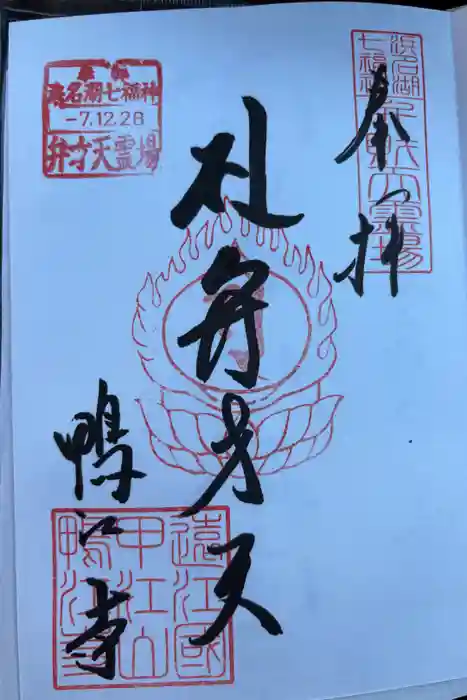 浜名湖
七福神
弁戝天霊場
奉拝
札弁才天
浜名湖七福神
-7.12.28
弁才天霊場
鴨江寺
遠江國
甲江山
鴨江寺